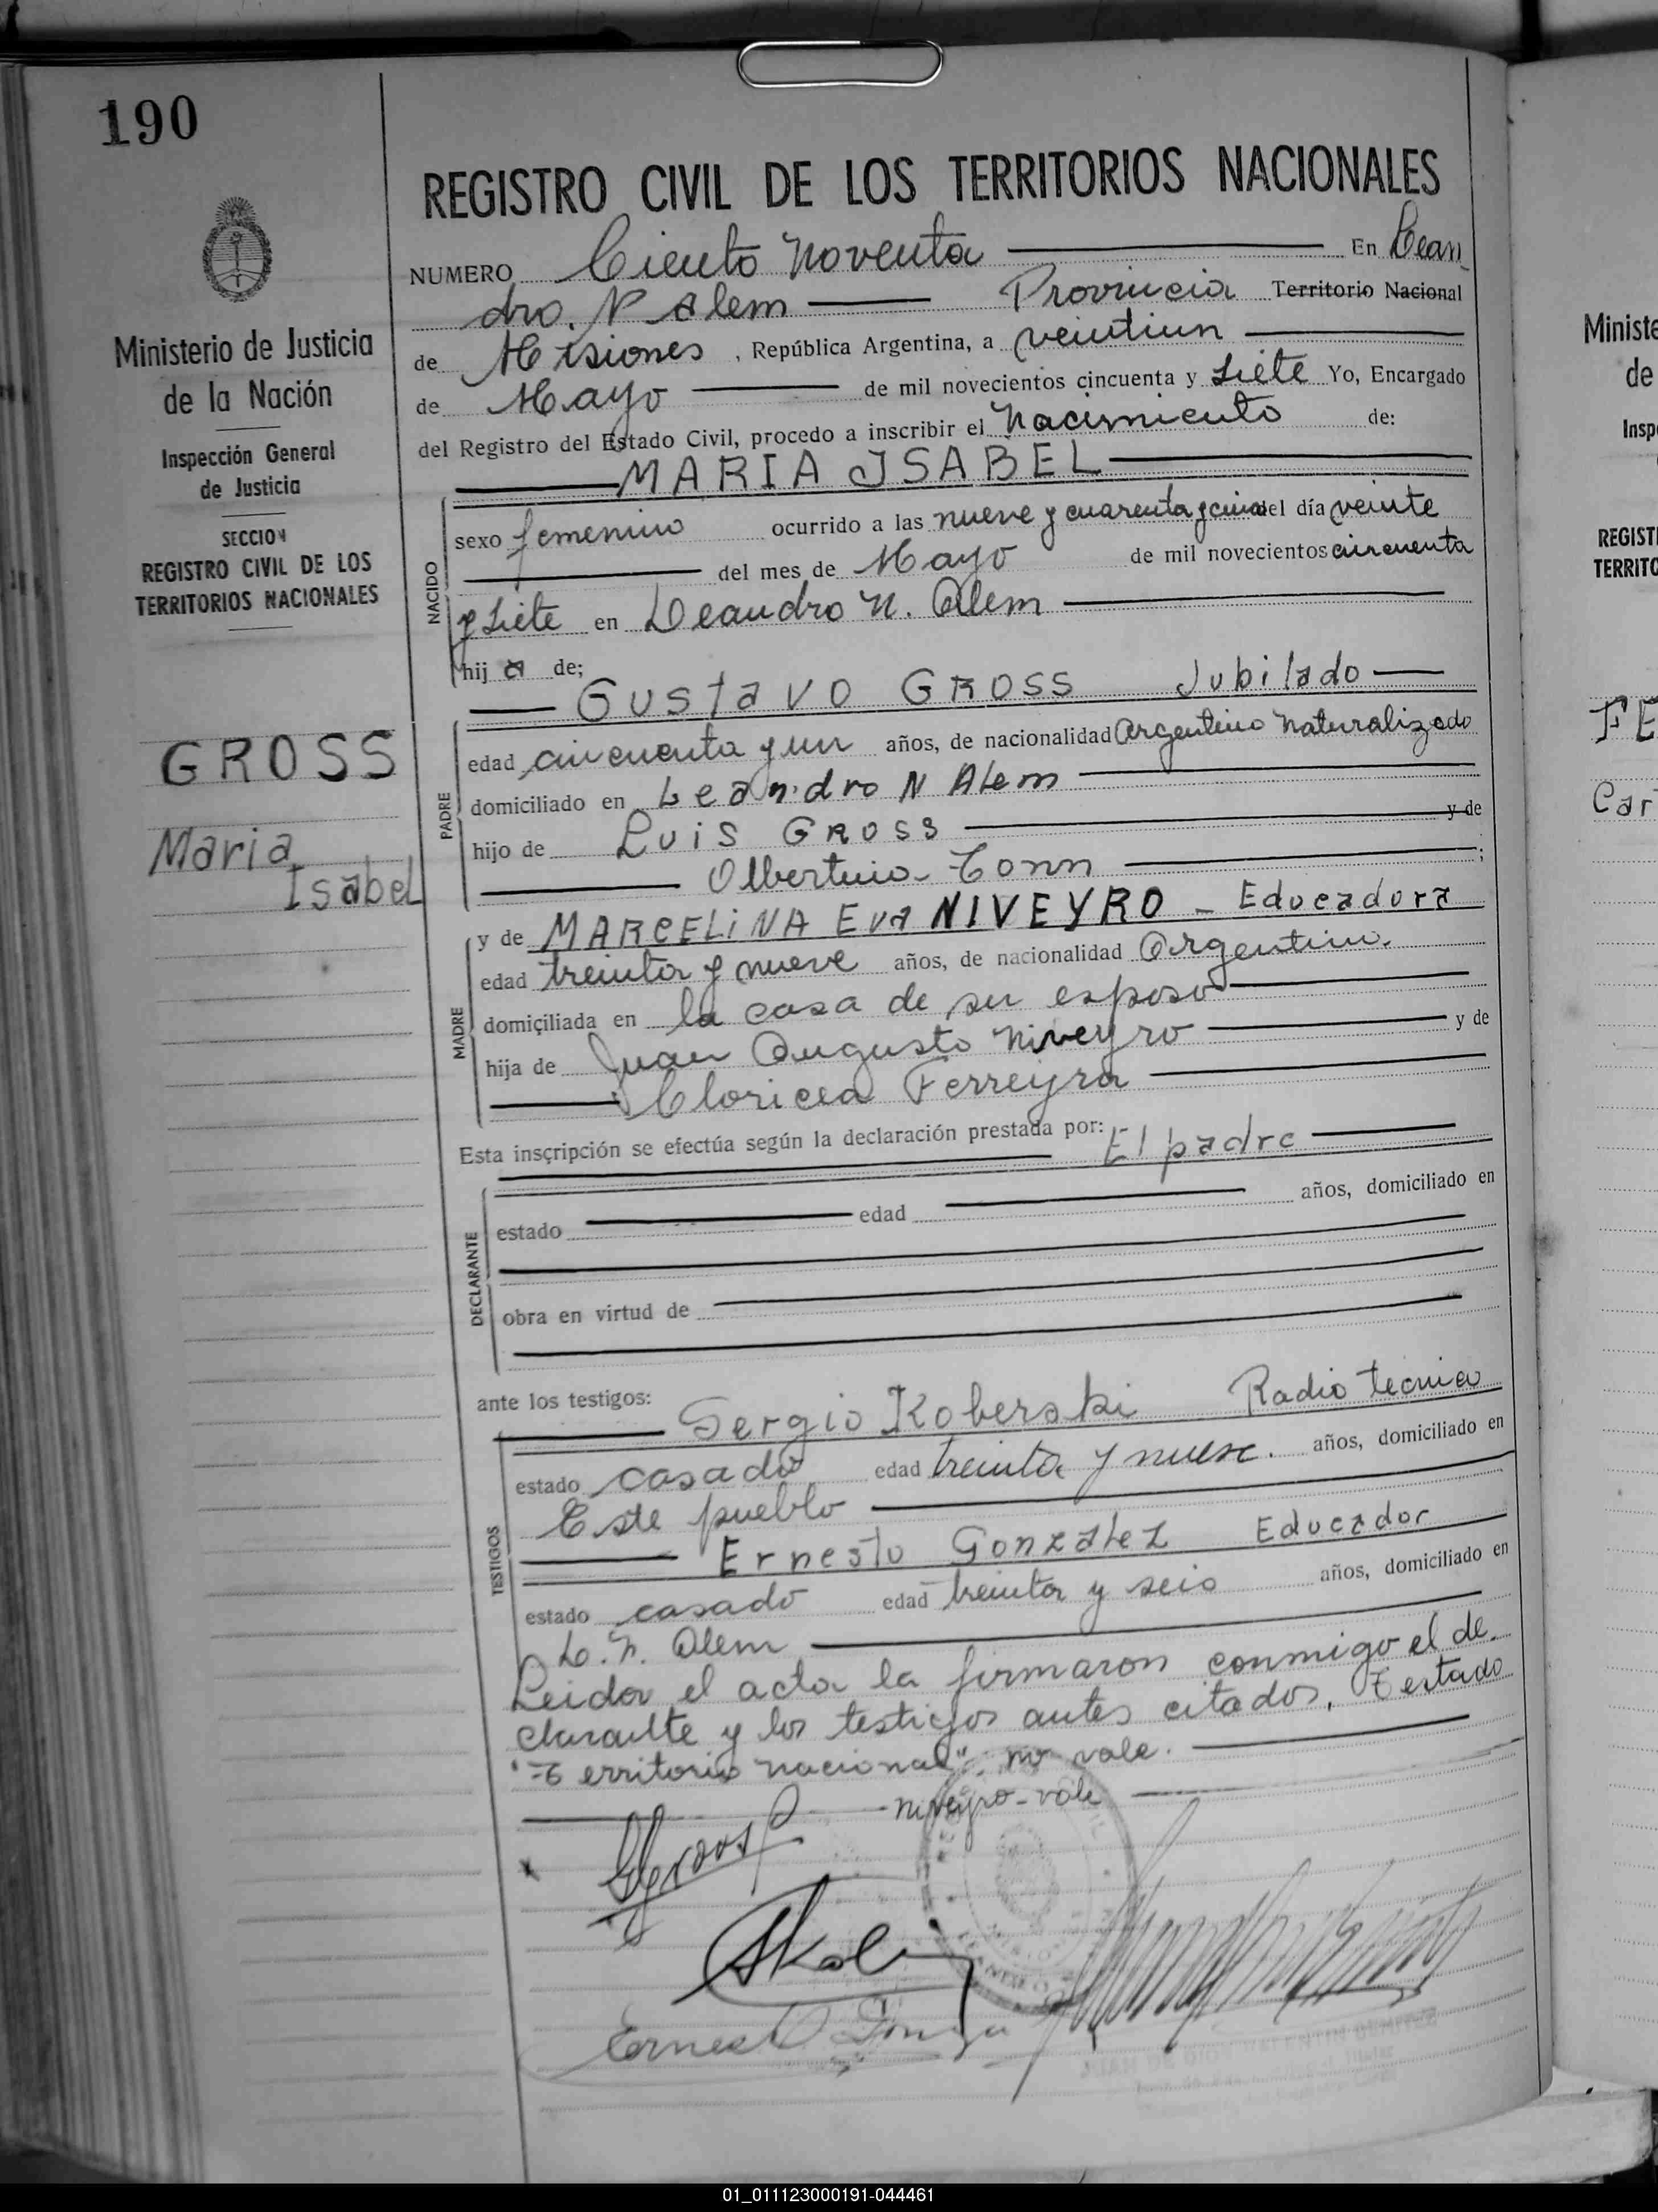 190
REGISTRO CIVIL DE LOS TERRITORIOS NACIONALES
NUMERO Ciento Noventa En Lean
dro. N Alem Provincia Territorio Nacional
de Misiones , República Argentina, a veintiun
de Mayo de mil novecientos cincuenta y siete Yo, Encargado
del Registro del Estado Civil, procedo a inscribir el Nacimiento de:
MARIA ISABEL
NACIDO
sexo femenino ocurrido a las nueve y cuarenta y cinco del día veinte
del mes de Mayo de mil novecientos cincuenta
y siete en Leandro N. Alem
hij a de;
GUSTAVO GROSS Jubilado
PADRE
edad cincuenta y un años, de nacionalidad Argentino Naturalizado
domiciliado en Leandro N Alem
hijo de Luis GROSS y de
Tonn ;
MADRE
y de MARCELINA Eva NIVEYRO - Educadora
edad treinta y nueve años, de nacionalidad Argentina.
domiciliada en la casa de su esposo
hija de Juan Augusto Niveyro y de
Ferreyra
Esta inscripción se efectúa según la declaración prestada por: El padre
DECLARANTE
estado edad años, domiciliado en
obra en virtud de
ante los testigos:
TESTIGOS
Sergio Koberski Radio técnico
estado casado edad treinta y nueve. años, domiciliado en
Este pueblo
Ernesto Gonzalez Educador
estado casado edad treinta y seis años, domiciliado en
L. N. Alem
Leida el acta la firmaron conmigo el de-
clarante y los testigos antes citados. Testado
"Territorio nacional". no vale.
Niveyro - vale
Ministerio de Justicia
de la Nación
Inspección General
de Justicia
SECCION
REGISTRO CIVIL DE LOS
TERRITORIOS NACIONALES
GROSS
Maria
Isabel
Ministe
de
Insp
REGISTI
TERRITO
FE
Car
01_011123000191-044461